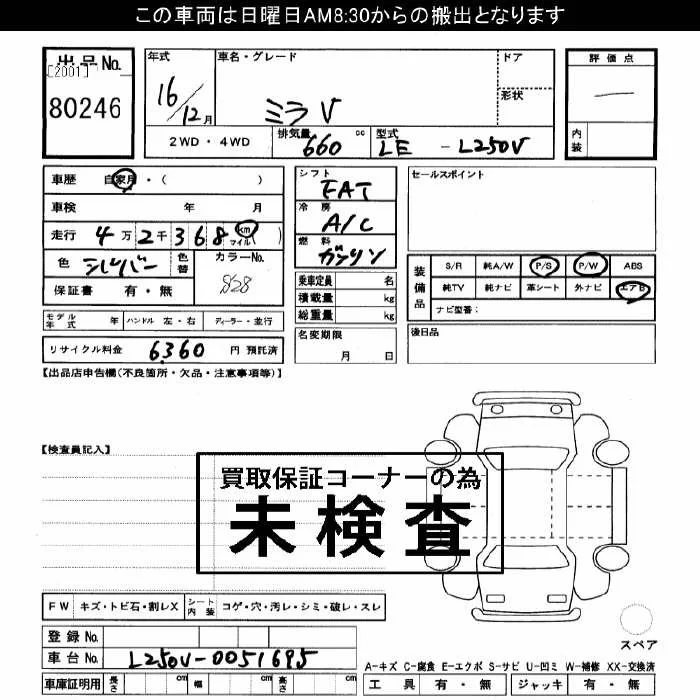 この車両は日曜日AM8:30からの搬出となります
出品No.
[2001]
80246
年式
16/12月
車名・グレード
ミラV
ドア
形状
評価点
一
内装
2WD・4WD
排気量 660 cc
型式 LE - L250V
車歴 自家用・( )
車検 年 月
走行 4万2千368 km マイル( )
色 シルバー 色替 カラーNo. S28
保証書 有・無
モデル年式 年 ハンドル 左・右 ディーラー・並行
リサイクル料金 6360 円 預託済
シフト FAT
冷房 A/C
燃料 ガソリン
乗車定員 名
積載量 kg
総重量 kg
名変期限
月 日
セールスポイント
装備品
S/R 純A/W P/S P/W ABS
純TV 純ナビ 革シート 外ナビ エアB
ナビ型番:
後日品
【出品店申告欄(不良箇所・欠品・注意事項等)】
【検査員記入】
買取保証コーナーの為
未検査
FW キズ・トビ石・割レX シート内装 コゲ・穴・汚レ・シミ・破レ・スレ
登録No.
車台No. L250V-0051695
車庫証明用 長さ cm 幅 cm 高さ cm
スペア
A-キズ C-腐食 E-エクボ S-サビ U-凹ミ W-補修 XX-交換済
工具 有・無 ジャッキ 有・無